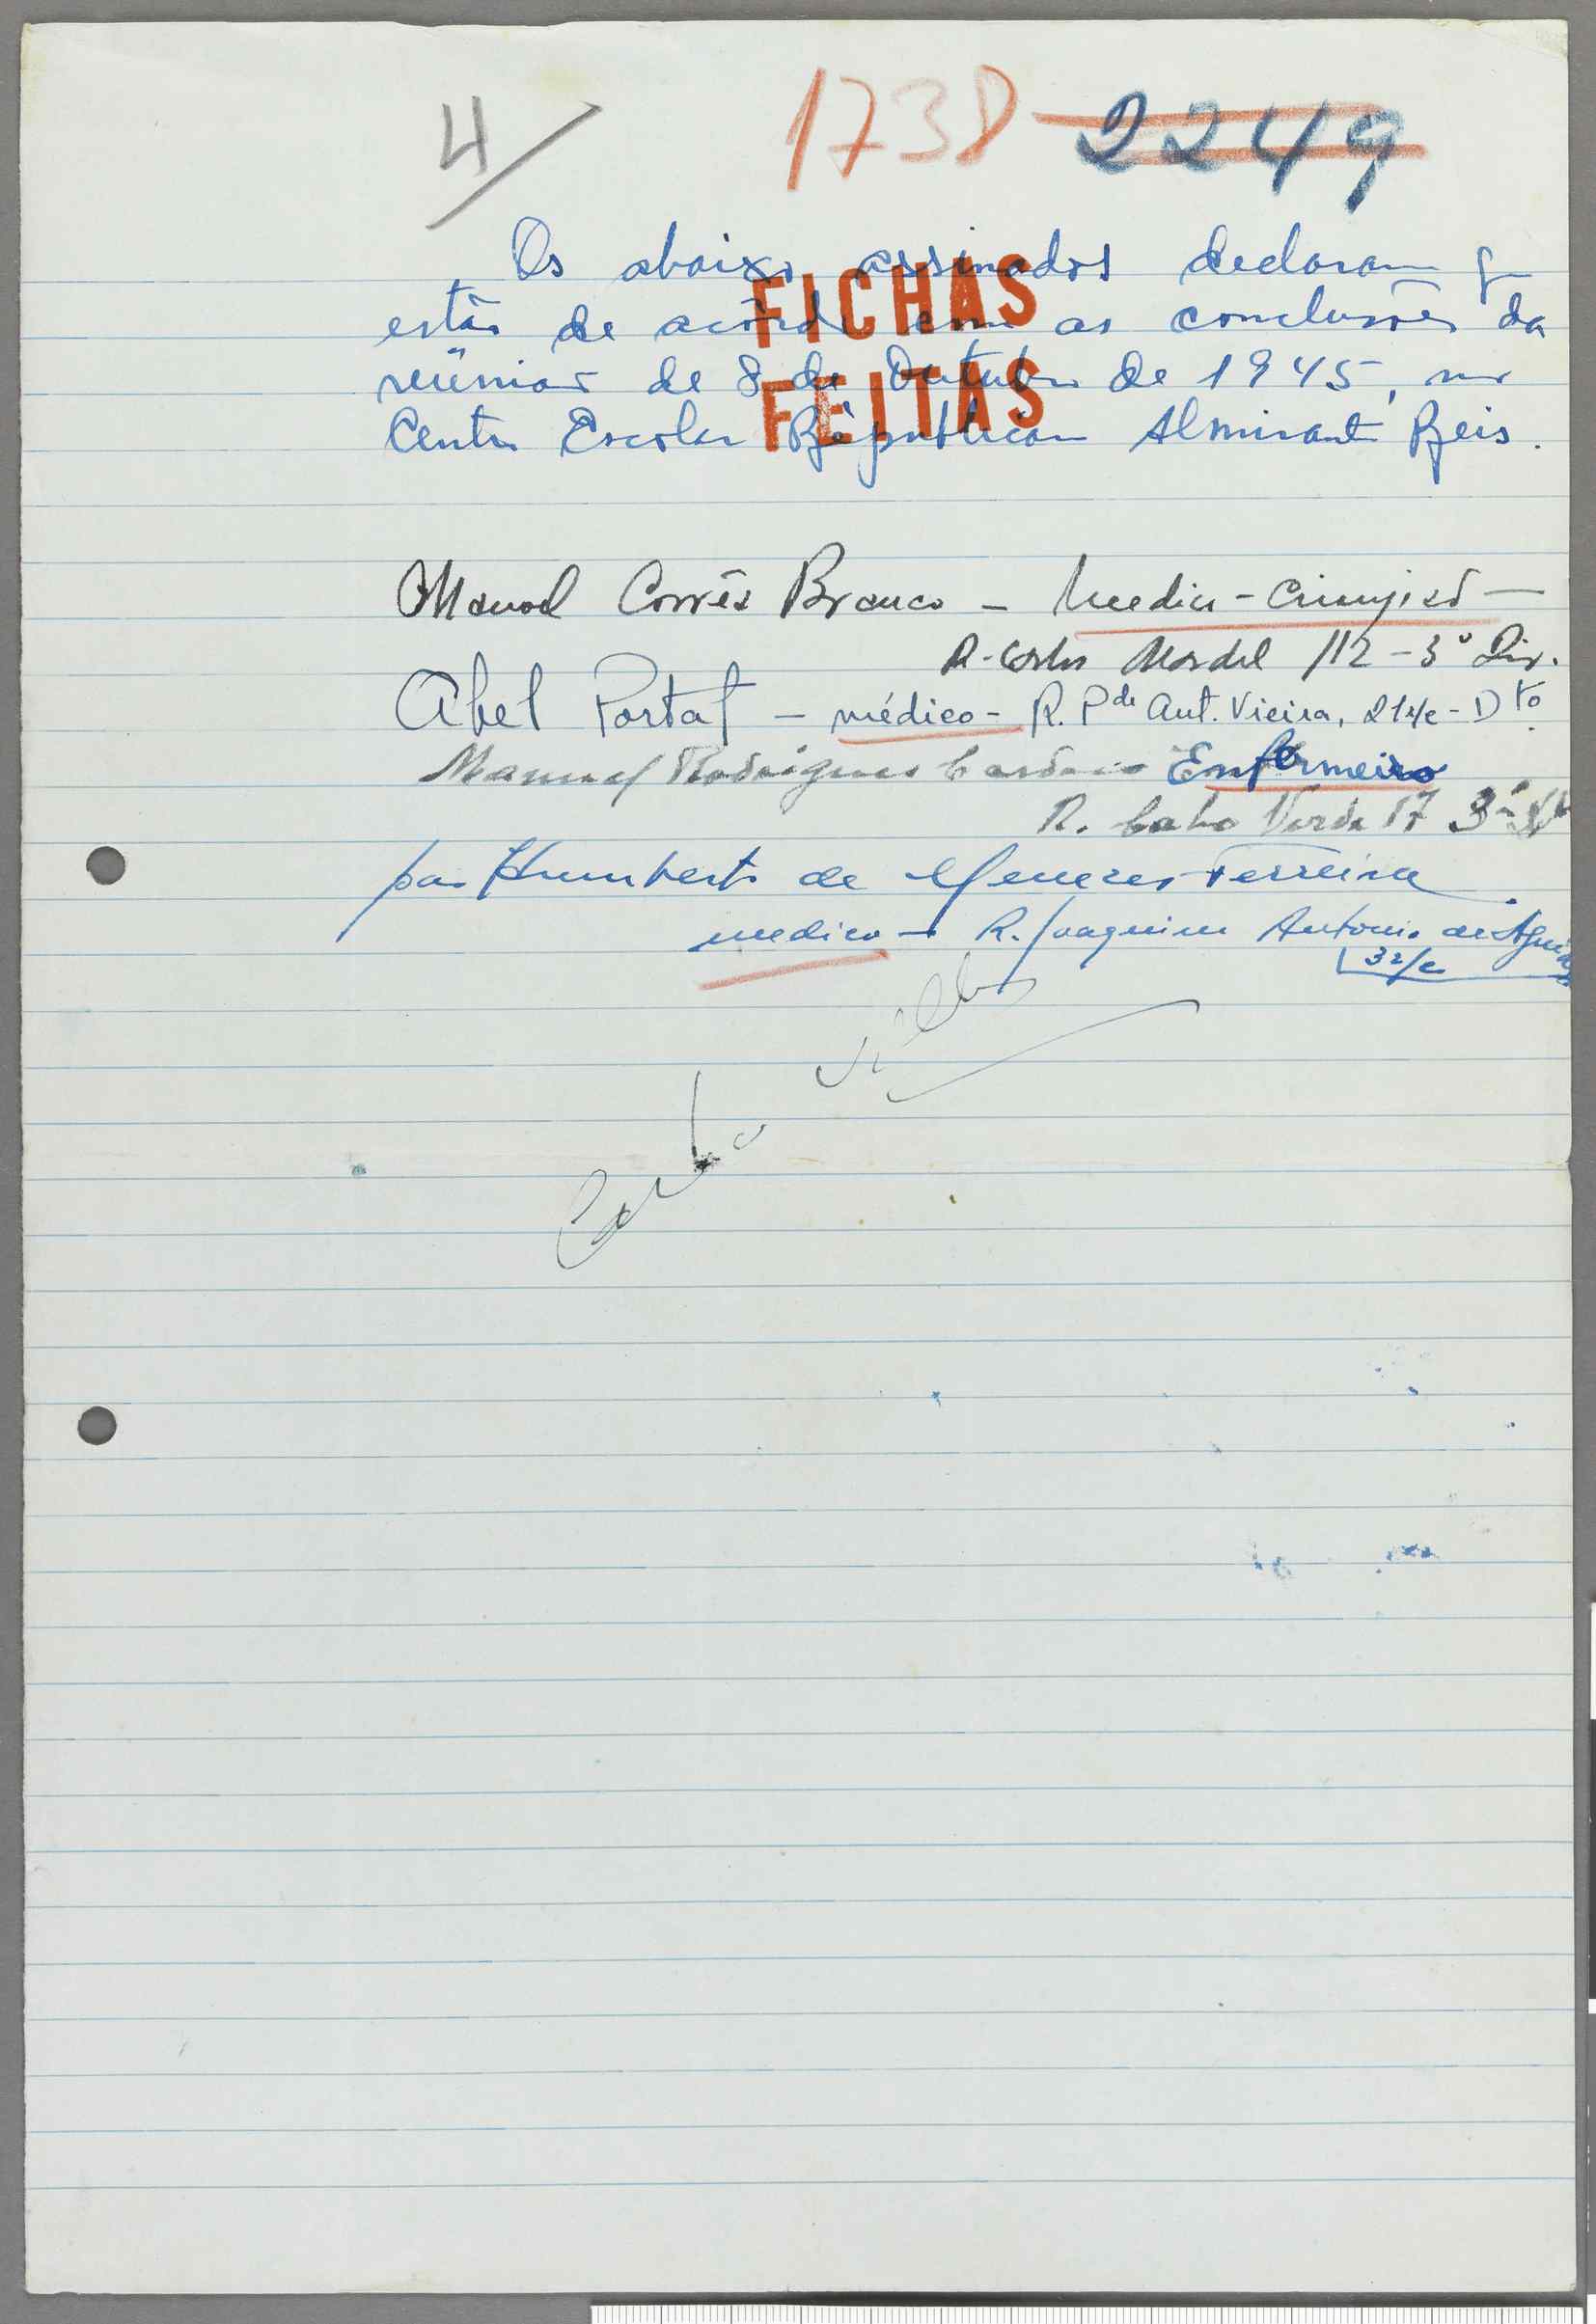 4/
1738 2249
Os abaixo assinados declaram q
estão de acôrdo com as conclusões da
reünião de 8 de Outubro de 1945, no
Centro Escolar Républicano Almirante Reis.
FICHAS
FEITAS
Manoel Corrêa Branco — Medico-Cirurgião —
R. Carlos Mardel 112 - 3º Dir.
Abel Portal — médico - R. Pde Ant. Vieira, 21 r/c - Dto
Manuel Rodrigues Cardoso Enfermeiro
R. Cabo Verde 17 3º
Humberto de Menezes Ferreira
medico — R. Joaquim Antonio de Aguiar
32 r/c